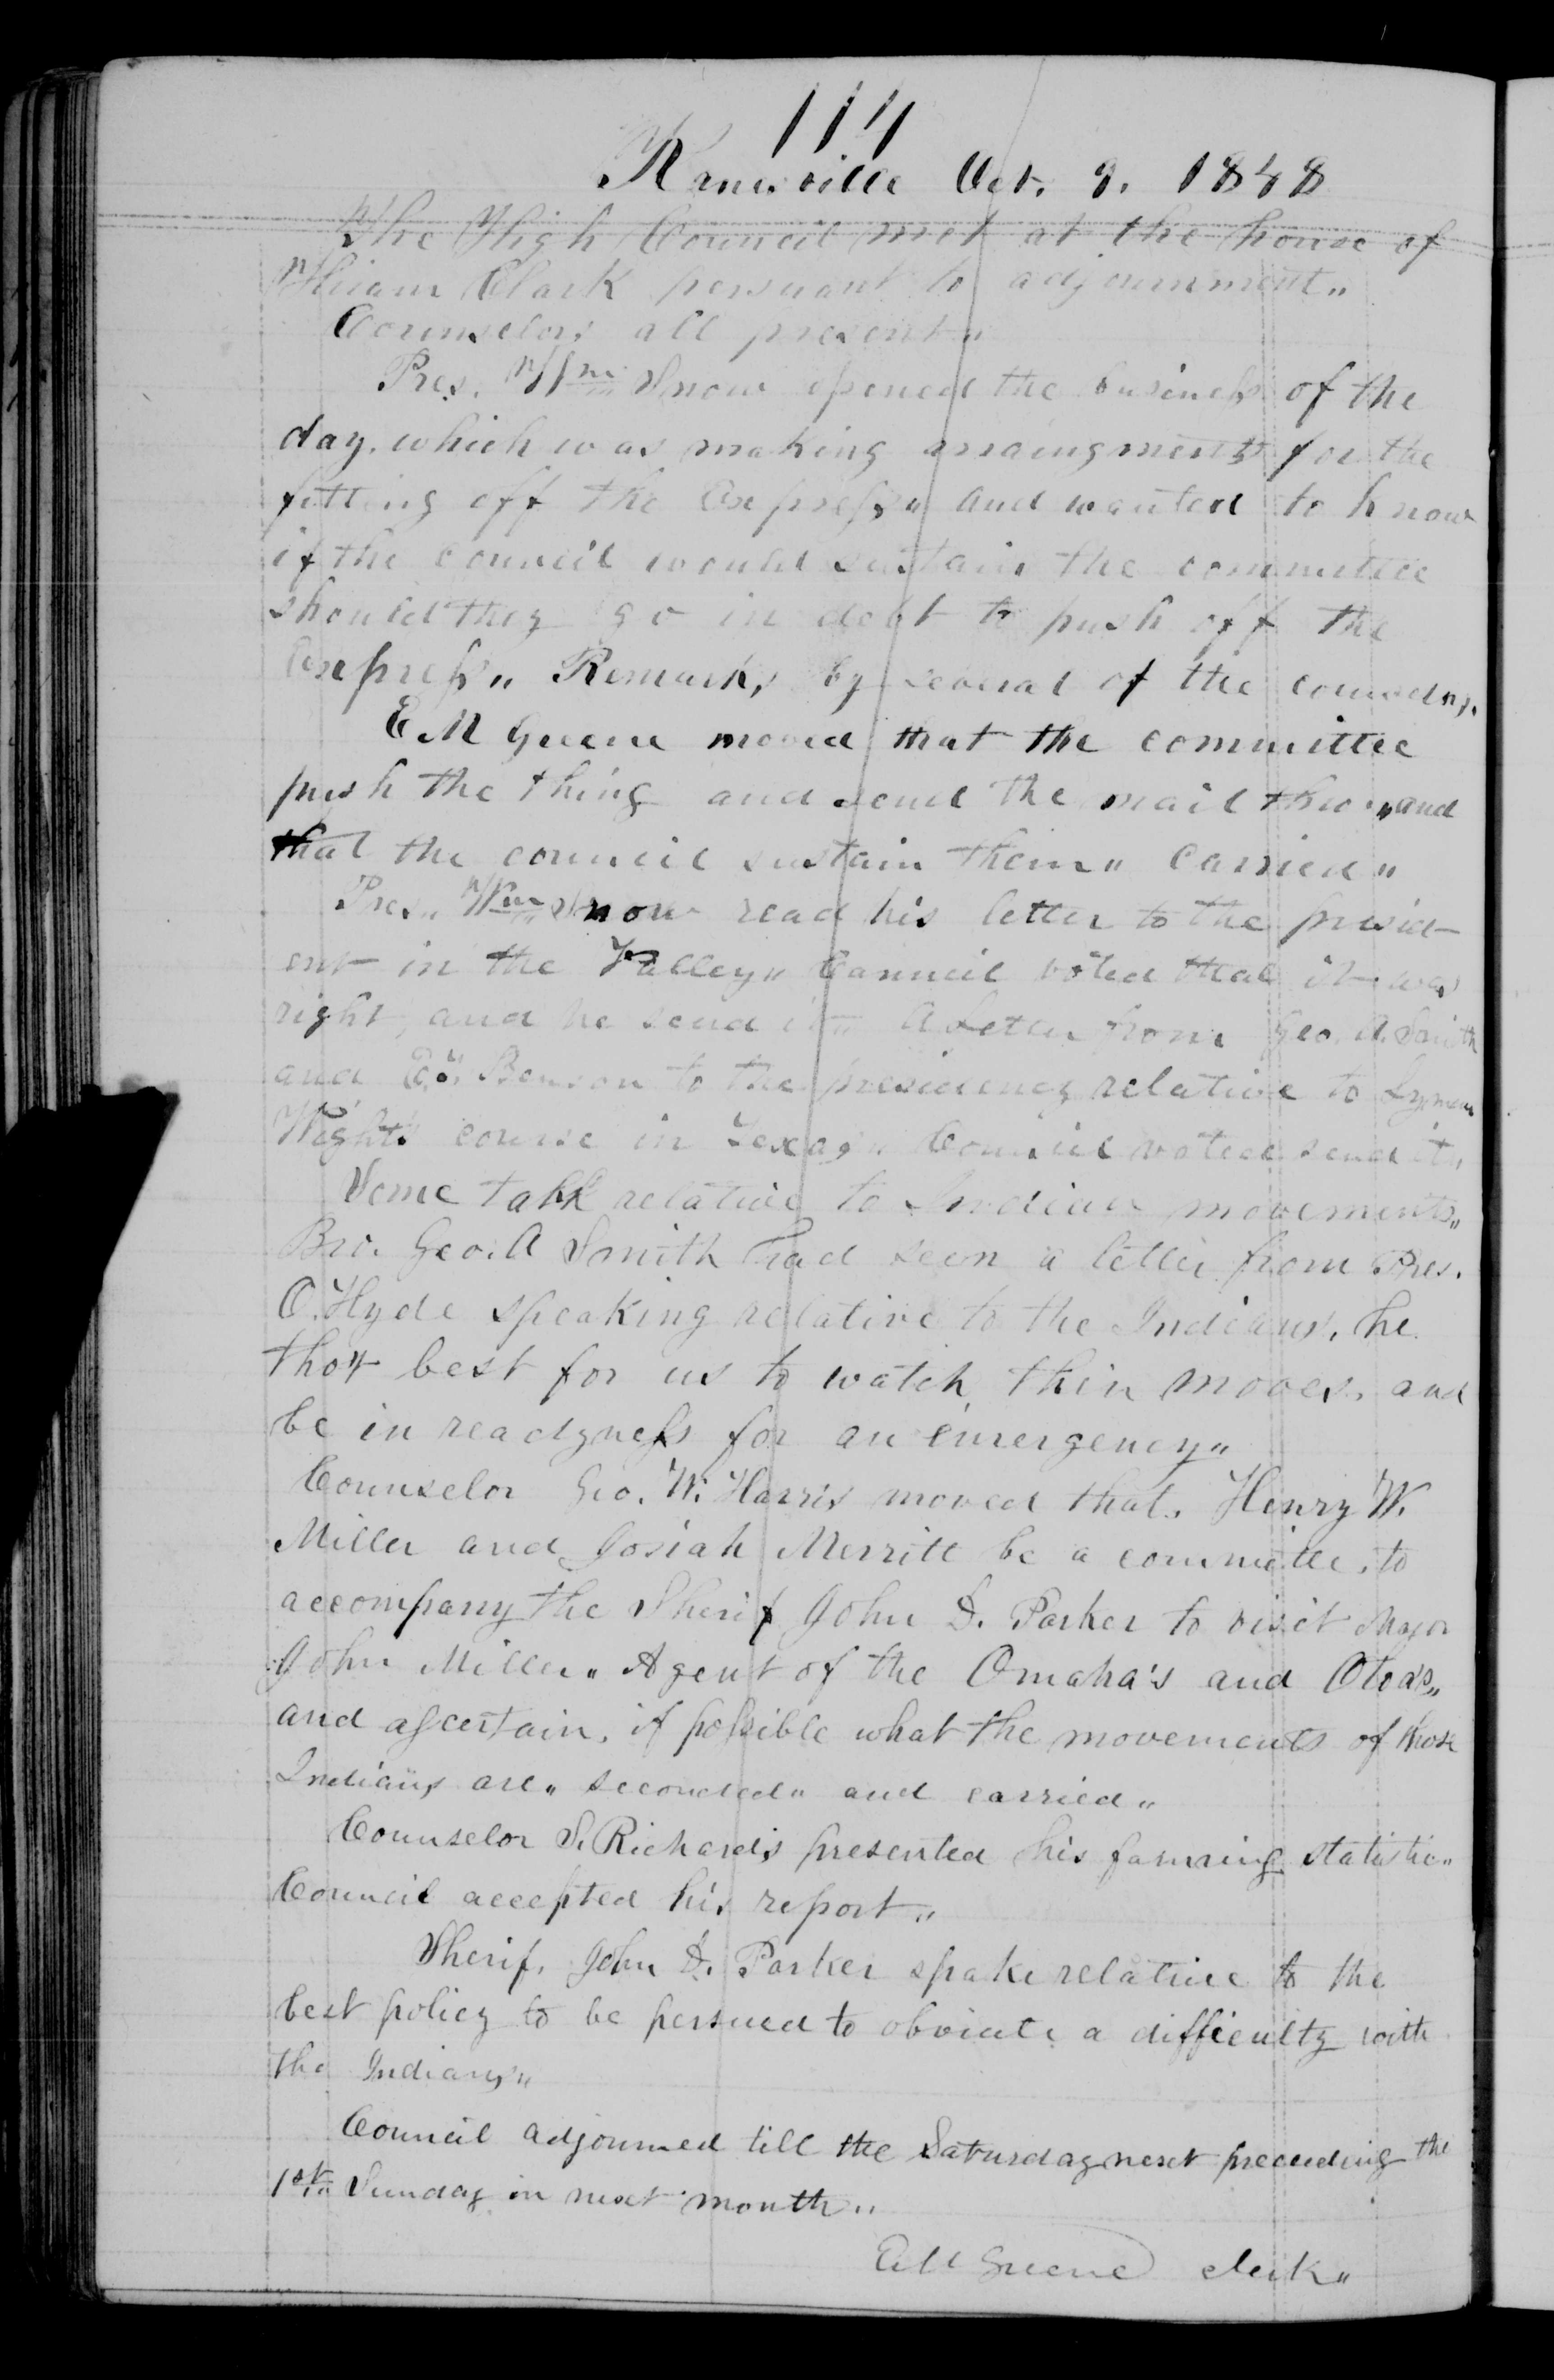 114
Kanesville Oct. 9. 1848
The High Council met at the house of
Hiram Clark persuant to adjournment"
Counselors all present"
Pres. Wm Snow opened the business of the
day. which was making arraingments for the
fitting off the Express" and wanted to know
if the council would sustain the committee
should they go in debt to push off the
Express" Remarks by several of the
E M Greene moved that the committee
push the thing and send the mail thro" and
that the council sustain them" carried"
Pres" Wm Snow read his letter to the presid-
ent in the Valley" Council voted that it was
right, and he send it" A Letter from Geo. A. Smith
and Benson to the presidency relative to Lyman
Wights course in Texas" Council voted send it"
Some talk relative to Indian movements"
Bro. Geo. A Smith had seen a letter from Pres.
O. Hyde speaking relative to the Indians. he
thot best for us to watch their moves. and
be in readyness for an emergency"
Counselor Geo. W. Harris moved that. Henry W.
Miller and Josiah Merritt be a committee. to
accompany the Sherif John D. Parker to visit Major
John Miller" Agent of the Omaha's and Otoa's"
and ascertain. if possible what the movements of those
Indians are" seconded" and carried"
Counselor S. Richards presented his farming statistic"
Council accepted his report"
Sherif. John D. Parker spake relative to the
best policy to be persued to obviate a difficulty with
the Indians"
Council adjourned till the Saturday next preceeding the
1st" Sunday in next month"
E M Greene clerk"